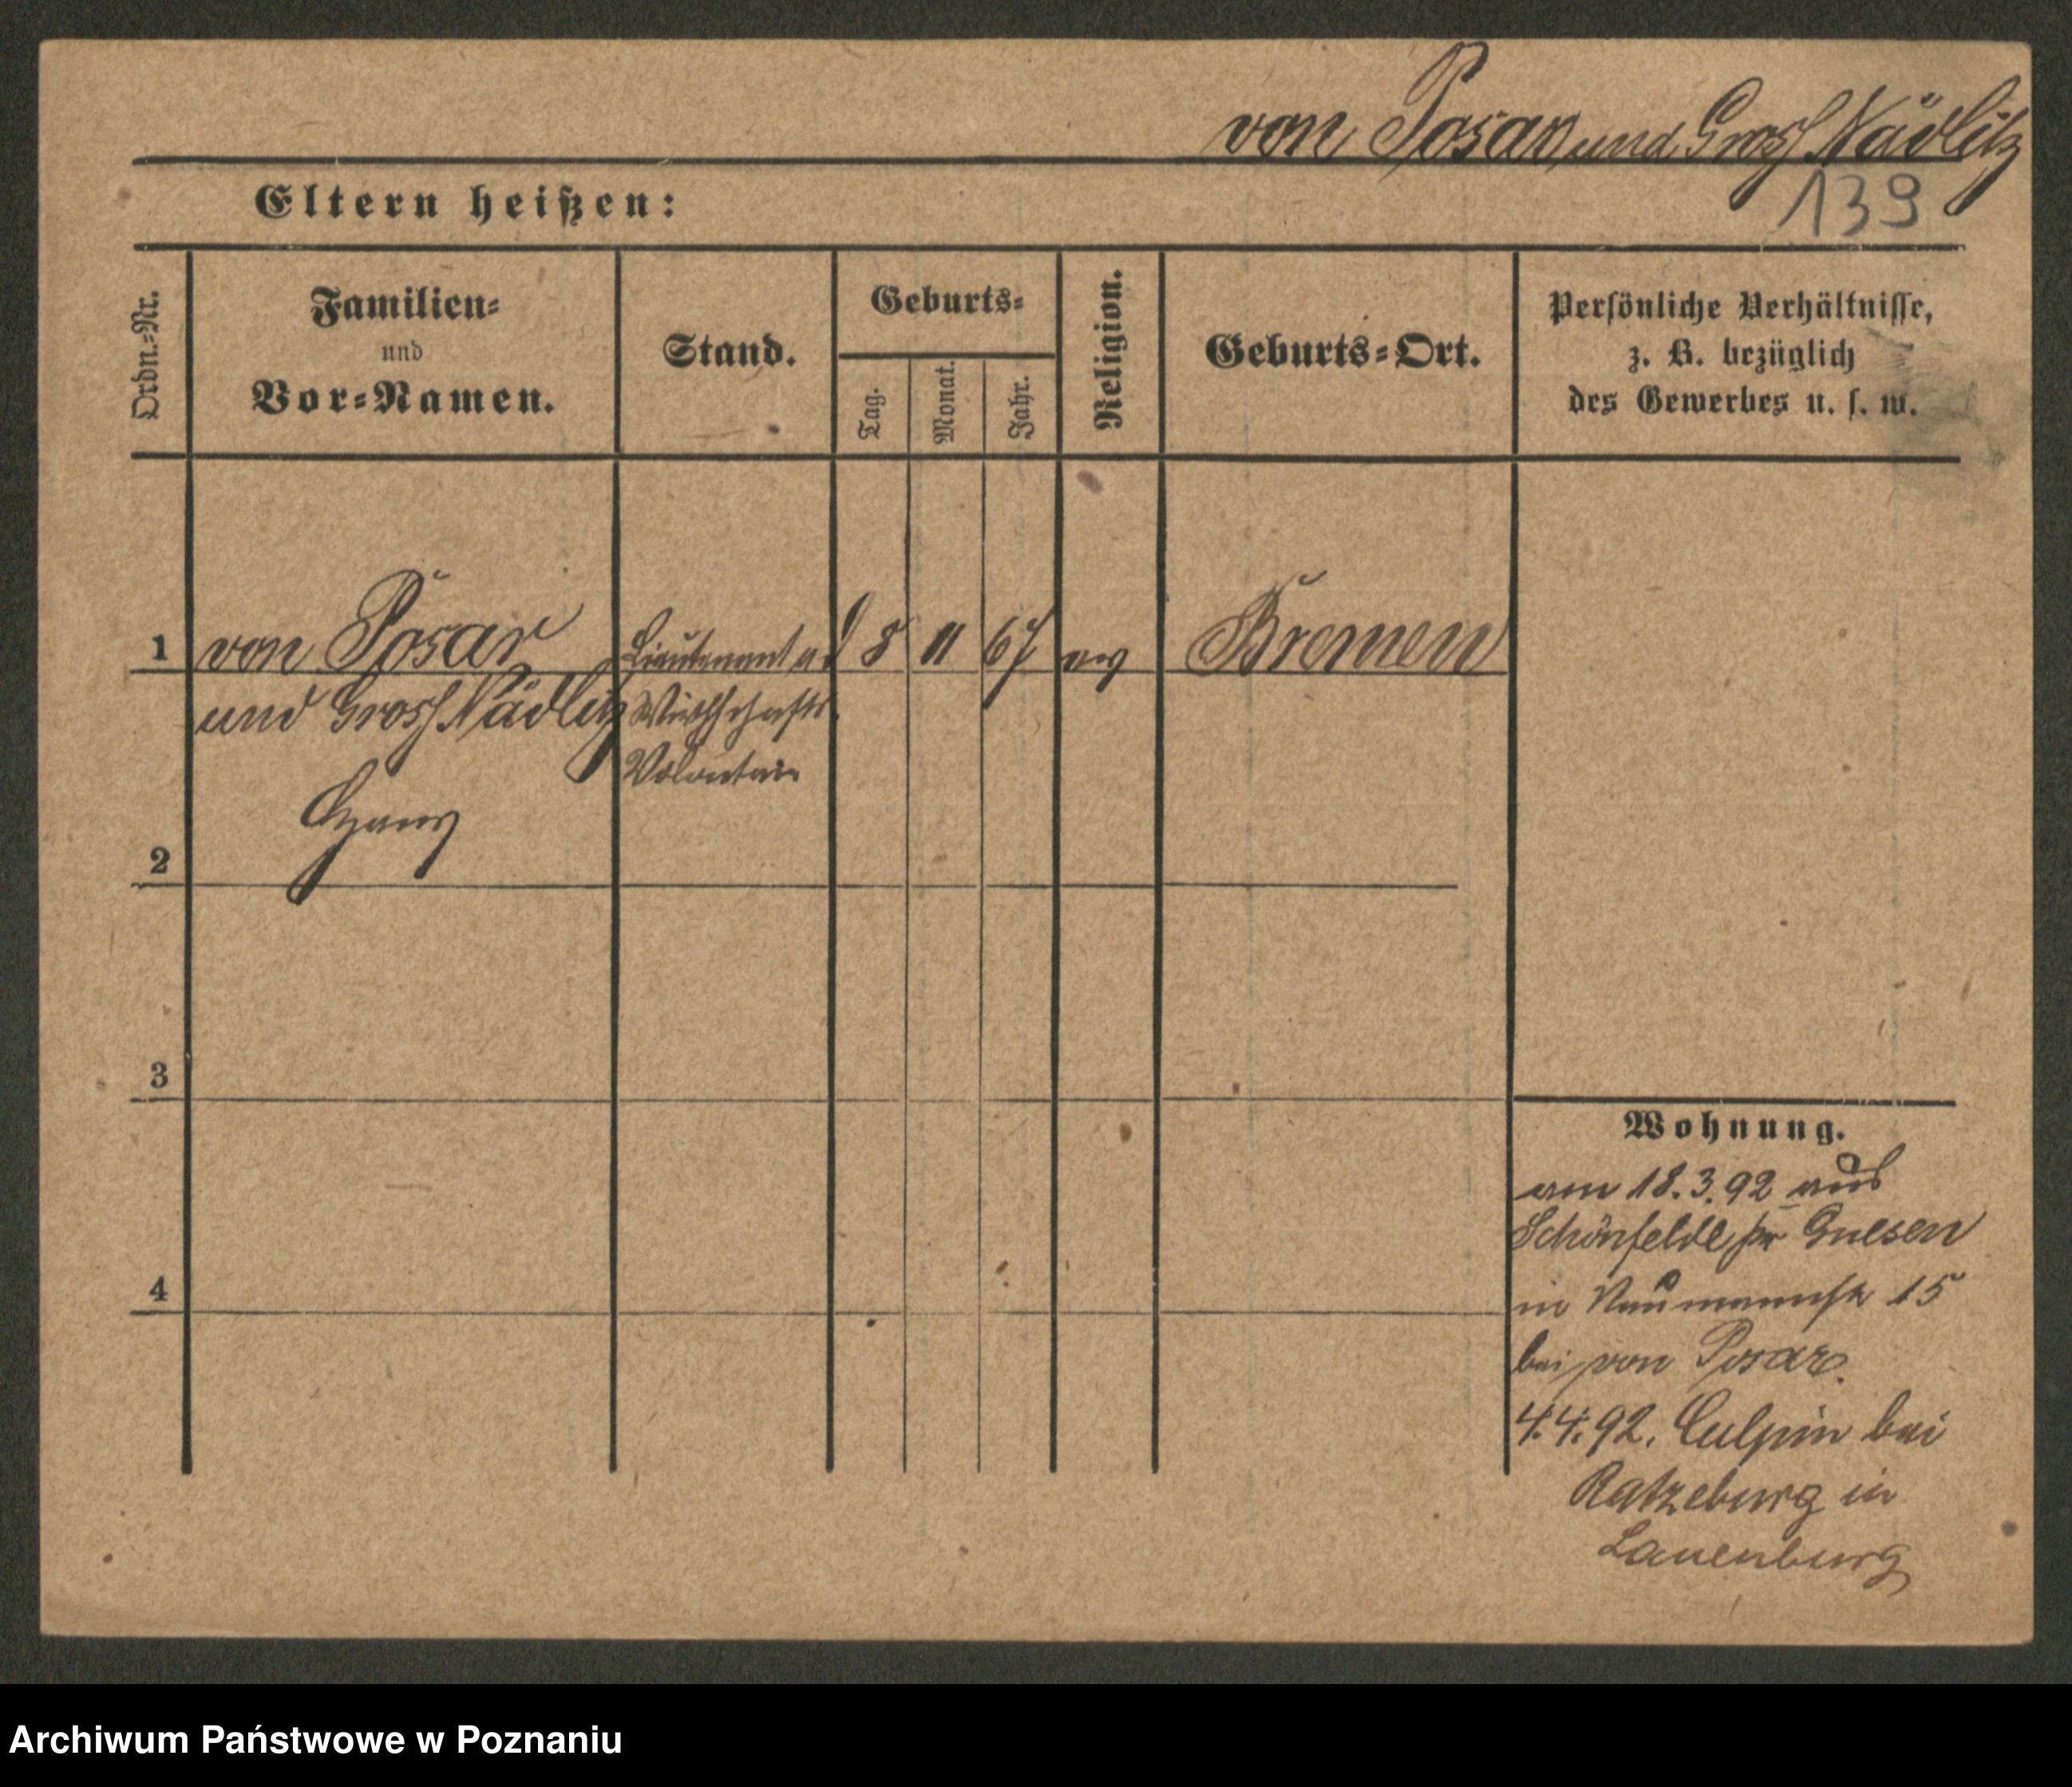 von Posar und Gross Nädlitz
139
Eltern heißen:
Ordn.-Nr.
Familien-
und
Vor-Namen.
Stand.
Geburts-
Tag.
Monat.
Jahr.
Religion.
Geburts-Ort.
Persönliche Verhältnisse,
z. B. bezüglich
des Gewerbes u. s. w.
1
von Posar
und Gross Nädlitz
Hans
Lieutenant a d
Wirthschafts
Volontair
8
11
67
ev
Bremen
2
3
4
Wohnung.
am 18.3.92 aus
Schönfelde pr Gnesen
in Naumannstr 15
bei von Posar.
4.4.92. Culpin bei
Ratzeburg in
Lauenburg
Archiwum Państwowe w Poznaniu